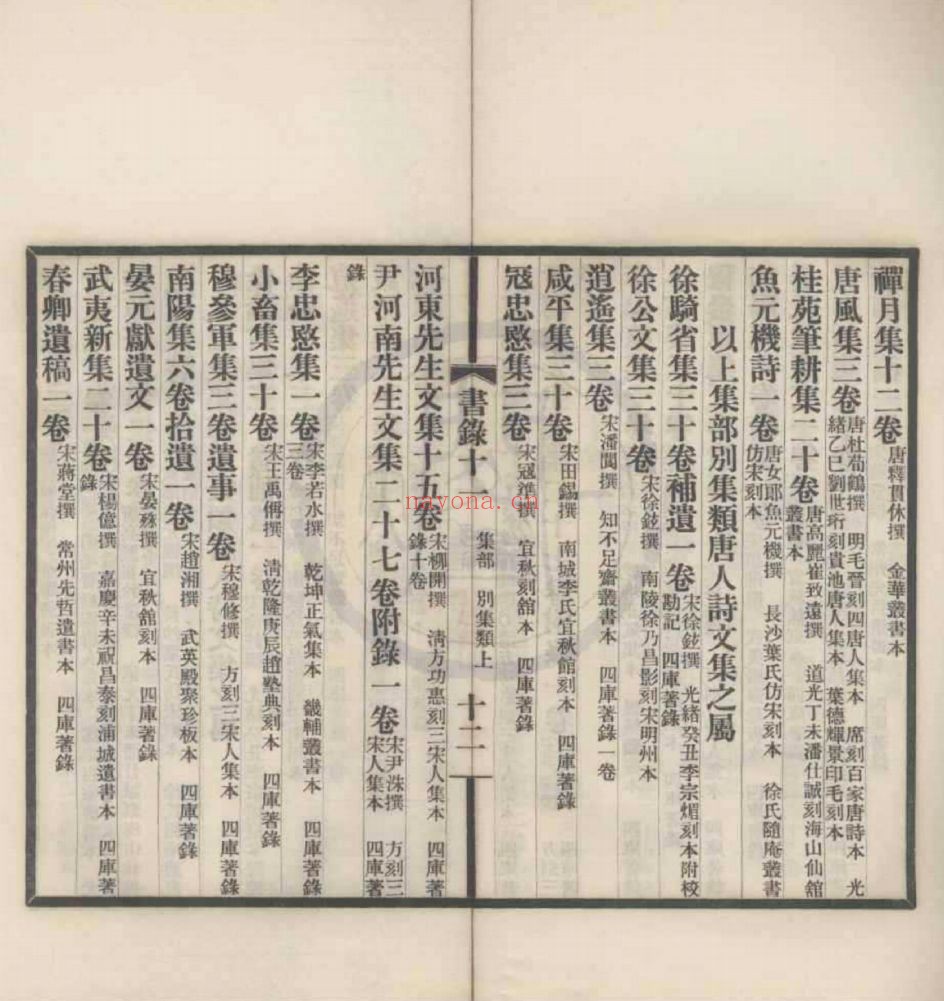 禪月集十二卷 唐釋貫休撰 金華叢書本
唐風集三卷 唐杜荀鶴撰 明毛晉刻四唐人集本 席刻百家唐詩本 光緒乙巳劉世珩刻貴池唐人集本 葉德輝景印毛刻本
桂苑筆耕集二十卷 唐高麗崔致遠撰 道光丁未潘仕誠刻海山仙館叢書本
魚元機詩一卷 唐女郎魚元機撰 長沙葉氏仿宋刻本 徐氏隨庵叢書仿宋刻本
以上集部別集類唐人詩文集之屬
徐騎省集三十卷補遺一卷 宋徐鉉撰 光緒癸丑李宗煝刻本附校勘記 四庫著錄
徐公文集三十卷 宋徐鉉撰 南陵徐乃昌影刻宋明州本
逍遙集三卷 宋潘閬撰 知不足齋叢書本 四庫著錄一卷
咸平集三十卷 宋田錫撰 南城李氏宜秋館刻本 四庫著錄
寇忠愍集三卷 宋寇準撰 宜秋刻館本 四庫著錄
書錄十一 集部 別集類上 十二
河東先生文集十五卷 宋柳開撰 清方功惠刻三宋人集本 四庫著錄十卷
尹河南先生文集二十七卷附錄一卷 宋尹洙撰 方刻三宋人集本 四庫著
錄
李忠愍集一卷 宋李若水撰 乾坤正氣集本 畿輔叢書本 四庫著錄三卷
小畜集三十卷 宋王禹偁撰 清乾隆庚辰趙塾典刻本 四庫著錄
穆參軍集三卷遺事一卷 宋穆修撰 方刻三宋人集本 四庫著錄
南陽集六卷拾遺一卷 宋趙湘撰 武英殿聚珍板本 四庫著錄
晏元獻遺文一卷 宋晏殊撰 宜秋館刻本 四庫著錄
武夷新集二十卷 宋楊億撰 嘉慶辛未祝昌泰刻浦城遺書本 四庫著錄
春卿遺稿一卷 宋蔣堂撰 常州先哲遺書本 四庫著錄
nayona.cn